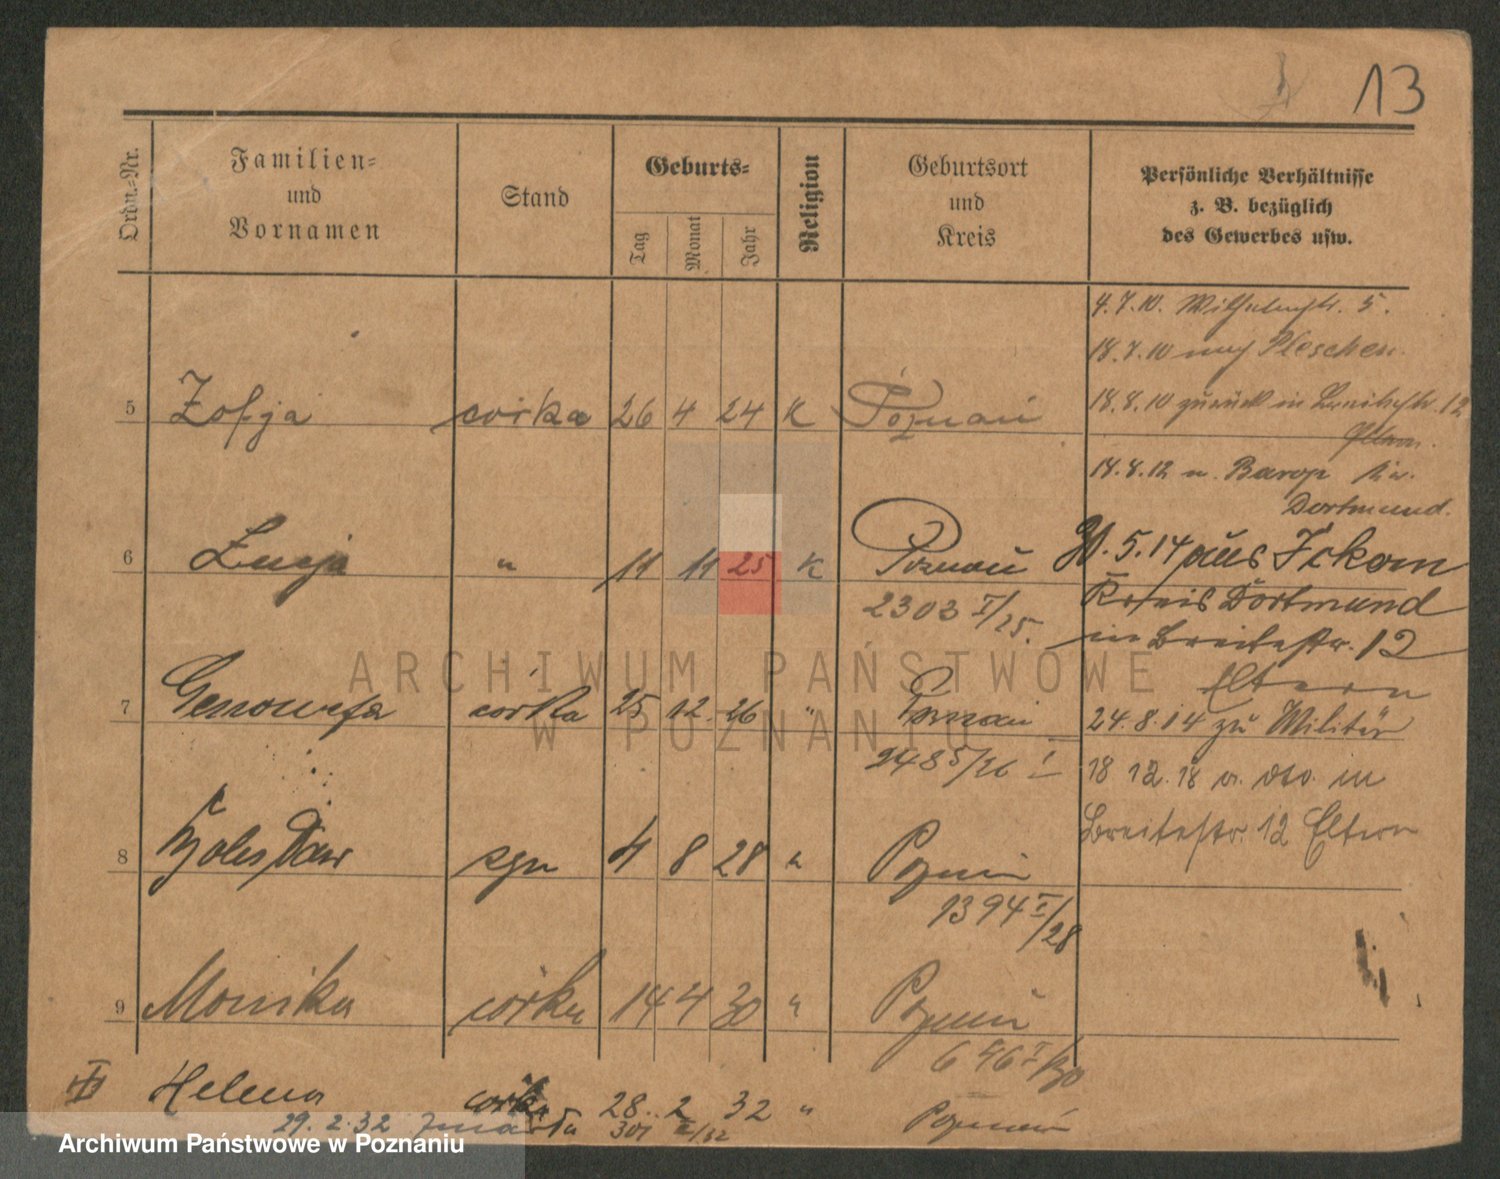 13
Ordn.-Nr.
Familien-
und
Vornamen
Stand
Geburts-
Tag
Monat
Jahr
Religion
Geburtsort
und
Kreis
Persönliche Verhältnisse
z. B. bezüglich
des Gewerbes usw.
4.7.10. Wilhelmstr. 5.
18.7.10 nach Pleschen.
18.8.10 zurück in Breitestr. 12
Eltern.
5 Zofja córka 26 4 24 K Poznań
18.8.12 n. Barop Kr.
Dortmund.
6 Łucja " 11 11 25 K Poznań
2303 I/25.
30.5.14 aus Ickern
Kreis Dortmund
in Breitestr. 12
Eltern
7 Genowefa córka 25 12 26 " Poznań
2485/26 I
24.8.14 zu Militär
18 12.18 v. dto. in
Breitestr. 12 Eltern
8 Bolesław syn 4 8 28 " Poznań
1394 I/28
9 Monika córka 14 4 30 " Poznań
646 I/30
Helena córka 28. 2 32 " Poznań
29. 2. 32 zmarła 301 II/32
ARCHIWUM PAŃSTWOWE
W POZNANIU
Archiwum Państwowe w Poznaniu